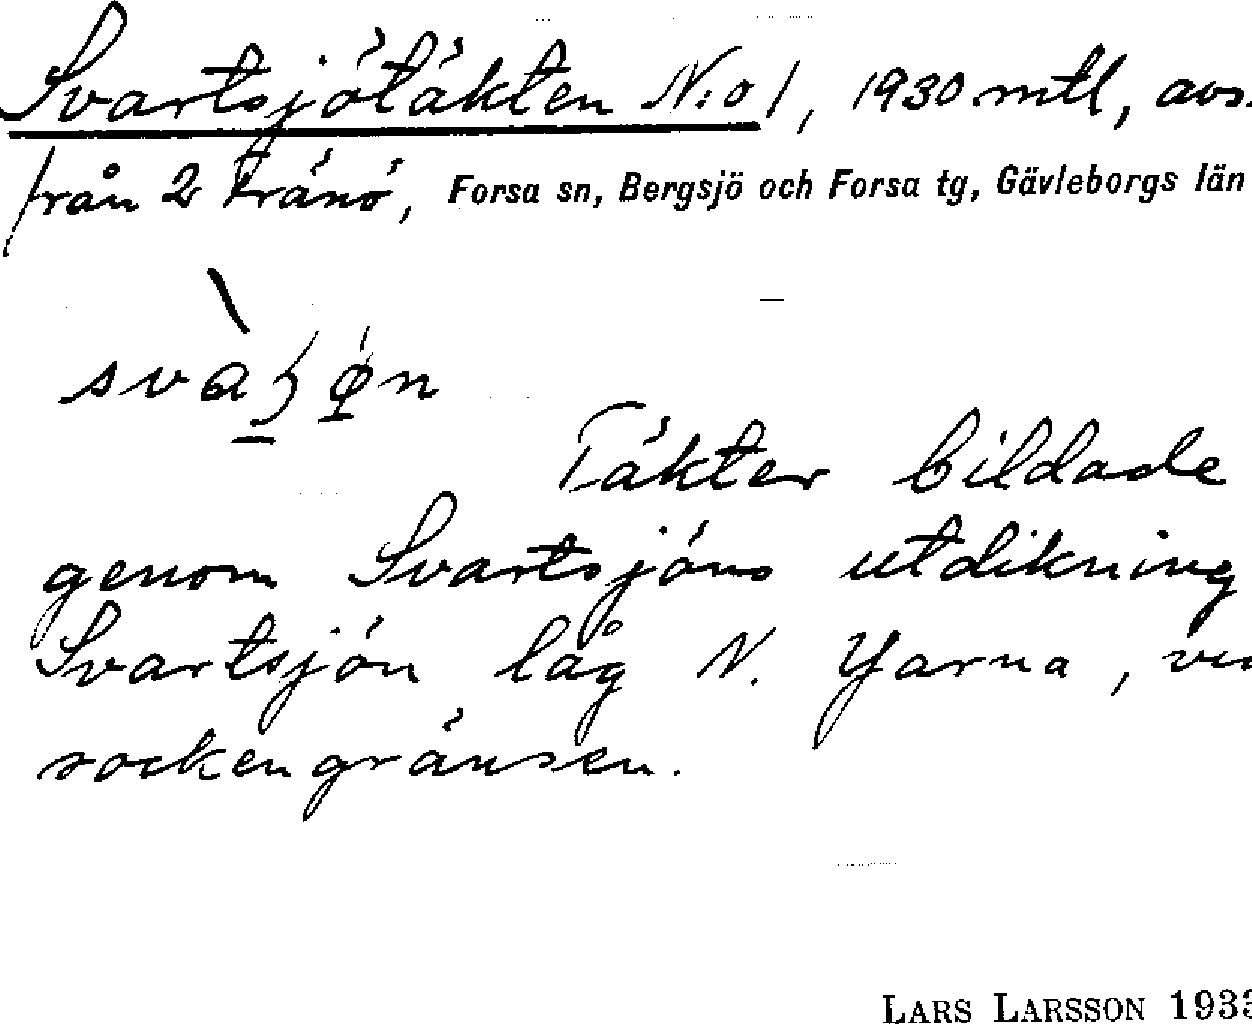 Svartsjötäkten N:o 1, 1930 mtl, avs.
från 2 Tränö, Forsa sn, Bergsjö och Forsa tg, Gävleborgs län
Täkter bildade
genom Svartsjöns utdikning
Svartsjön låg N. Yarna,
sockengränsen.
LARS LARSSON 193